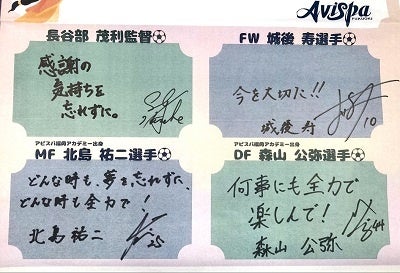 AviSpa
FUKUOKA
長谷部 茂利監督
感謝の
気持ちを
忘れずに。
FW 城後 寿選手
今を大切に!!
城後 寿
10
アビスパ福岡アカデミー出身
MF 北島 祐二選手
どんな時も、夢を忘れずに、
どんな時も全力で!
北島 祐二
25
アビスパ福岡アカデミー出身
DF 森山 公弥選手
何事にも全力で
楽しんで!
森山 公弥
44